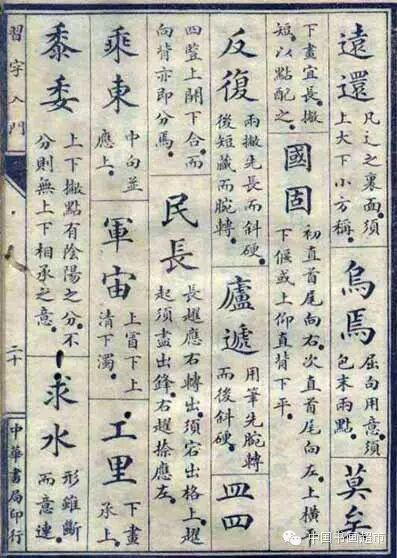 遠還
凡辶之裏面須
上大下小方稱。
烏焉
屈向用意須
包末兩點。
莫矣
下畫宜長撇
短以點配之。
國固
初直首尾向右次直首尾向左上橫平
下候或上仰直背下平。
反復
兩撇先長而斜硬
後短藏而腕轉。
廬遞
用筆先腕轉
而後斜硬。
皿四
四豎上開下合而
向背亦即分焉。
民長
長趯應右轉出須宕出格上趯
起須盡出鋒右趯捺應左。
乘東
中向並
應上。
軍宙
上冒下上
清下濁。
工里
下畫
承上。
黍委
上下撇點有陰陽之分不
分則無上下相承之意。
求水
形雖斷
而意連。
習字入門
二十
中華書局印行
中国书画超市